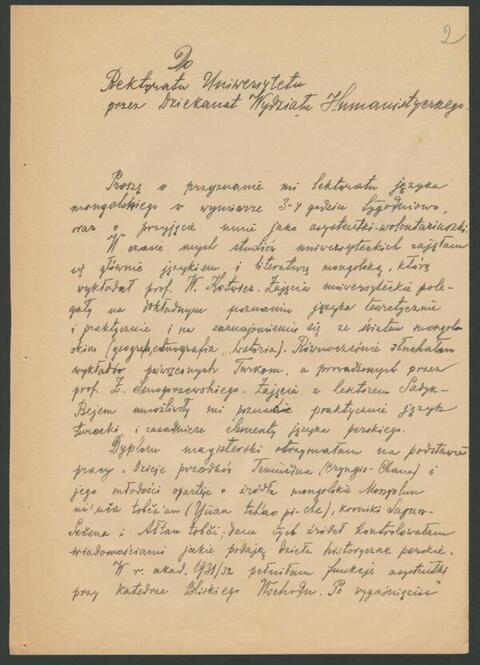 2
Do
Rektoratu Uniwersytetu
przez Dziekanat Wydziału Humanistycznego.
Proszę o przyznanie mi lektoratu języka
mongolskiego w wymiarze 3-4 godzin tygodniowo,
oraz o przyjęcie mnie jako asystentki-wolontariuszki.
W czasie mych studiów uniwersyteckich zajęłam
się głównie językiem i literaturą mongolską, którą
wykładał prof. W. Kotwicz. Zajęcia uniwersyteckie pole-
gały na dokładnym poznaniu języka teoretycznie
i praktycznie i na zaznajomieniu się ze światem mongol-
skim (geografia, etnografia, historia). Równocześnie słuchałam
wykładów poświęconych Turkom, a prowadzonych przez
prof. Z. Smogorzewskiego. Zajęcia z lektorem Sadyk-
Bejem umożliwiły mi poznanie praktycznie język
turecki i zasadnicze elementy języka perskiego.
Dyplom magisterski otrzymałam na podstawie
pracy "Dzieje przodków Temucina (Czyngis-Chana) i
jego młodości oparte o źródła mongolskie Mongolun
ni'uča tobča'an (Yüan ch'ao pi-che), kroniki Sagan-
Sečena i Ałtan tobči, dane tych źródeł kontrolowałam
wiadomościami jakie podają dzieła historyczne perskie.
W r. akad. 1931/32 pełniłam funkcje asystentki
przy katedrze Bliskiego Wschodu. Po wygaśnięciu